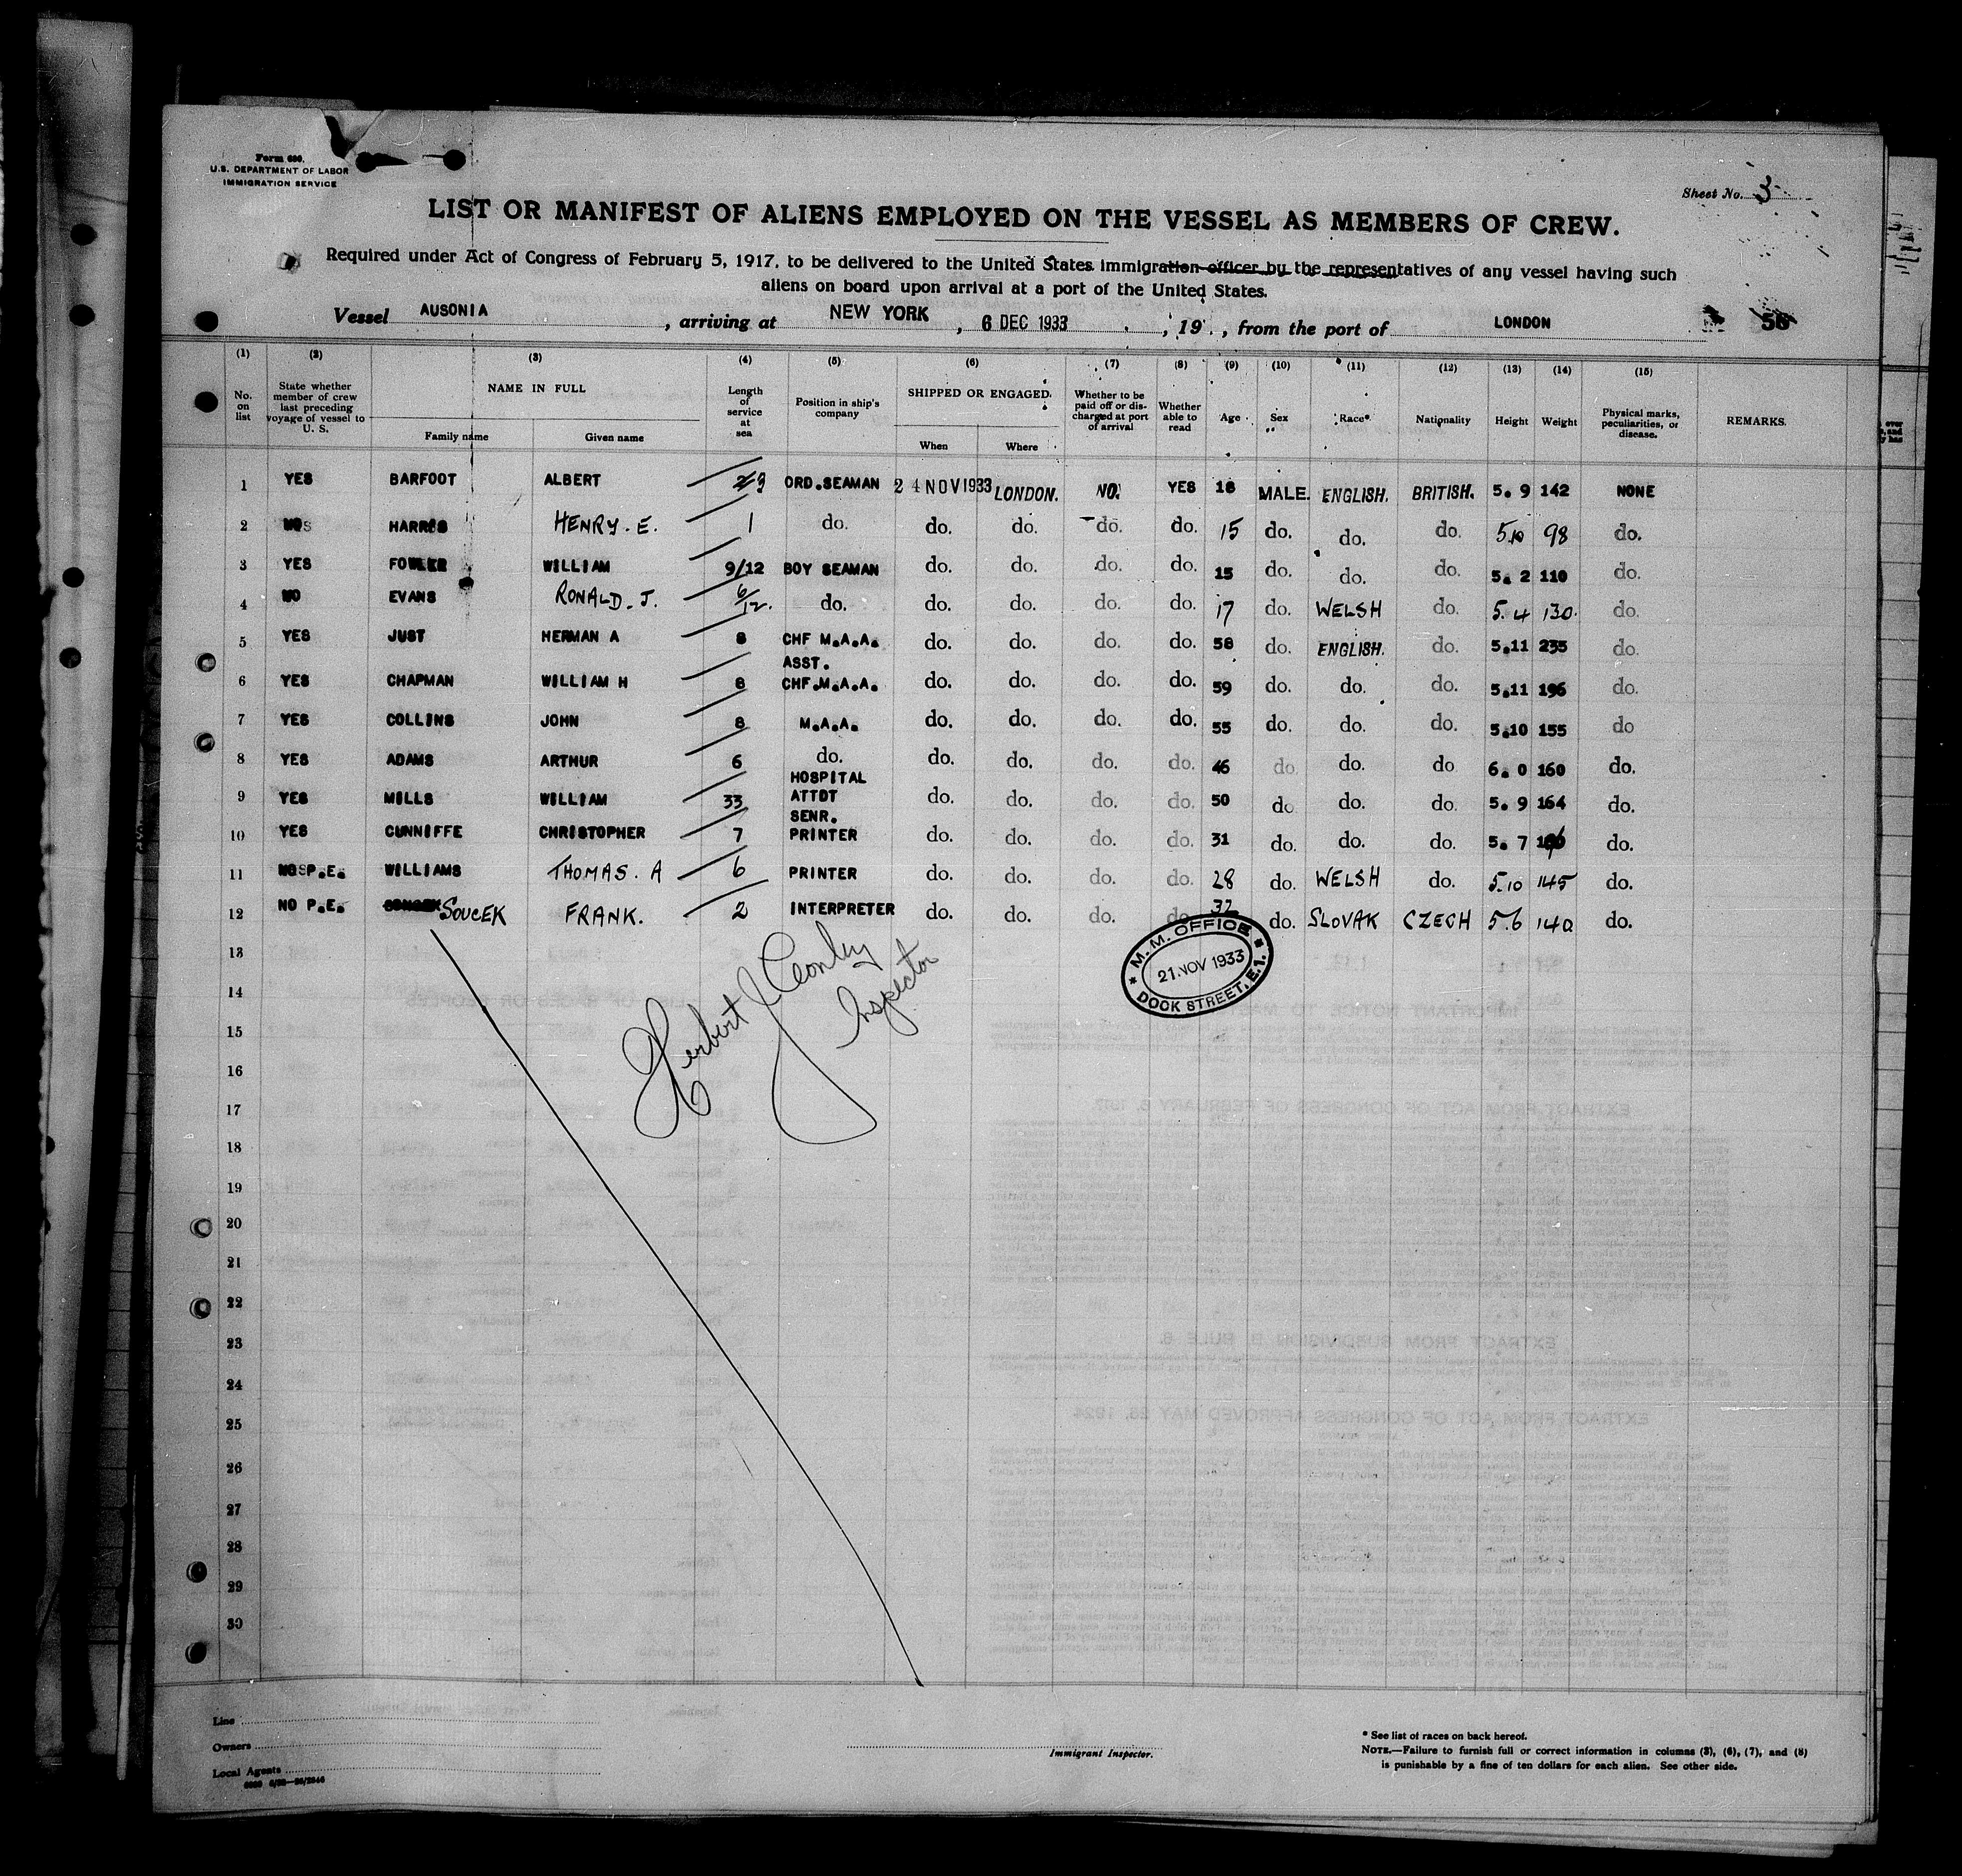 Form 680.
U.S. DEPARTMENT OF LABOR
IMMIGRATION SERVICE
Sheet No. 3
LIST OR MANIFEST OF ALIENS EMPLOYED ON THE VESSEL AS MEMBERS OF CREW.
Required under Act of Congress of February 5, 1917, to be delivered to the United States immigration officer by the representatives of any vessel having such
aliens on board upon arrival at a port of the United States.
Vessel AUSONIA , arriving at NEW YORK , 6 DEC 1933 , 19 , from the port of LONDON
(1) (2) (3) (4) (5) (6) (7) (8) (9) (10) (11) (12) (13) (14) (15)
No. on list State whether member of crew last preceding voyage of vessel to U. S. NAME IN FULL Family name Given name Length of service at sea Position in ship's company SHIPPED OR ENGAGED. When Where Whether to be paid off or discharged at port of arrival Whether able to read Age Sex Race* Nationality Height Weight Physical marks, peculiarities, or disease. REMARKS.
1 YES BARFOOT ALBERT ORD.SEAMAN 24 NOV 1933 LONDON. NO. YES 18 MALE. ENGLISH. BRITISH. 5. 9 142 NONE
2 HARRIS HENRY. E. 1 do. do. do. do. do. 15 do. do. do. 5.10 98 do.
3 YES FOWLER WILLIAM 9/12 BOY SEAMAN do. do. do. do. 15 do. do. do. 5. 2 110 do.
4 NO EVANS RONALD. J. 6/12. do. do. do. do. do. 17 do. WELSH do. 5.4 130. do.
5 YES JUST HERMAN A 8 CHF M.A.A. do. do. do. do. 58 do. ENGLISH. do. 5.11 235 do.
6 YES CHAPMAN WILLIAM H 8 ASST. CHF.M.A.A. do. do. do. do. 59 do. do. do. 5.11 196 do.
7 YES COLLINS JOHN 8 M.A.A. do. do. do. do. 55 do. do. do. 5.10 155 do
8 YES ADAMS ARTHUR 6 do. do. do. do. do. 46 do. do. do 6. 0 160 do.
9 YES MILLS WILLIAM 33 HOSPITAL ATTDT do. do. do. do. 50 do. do. do. 5. 9 164 do.
10 YES CUNNIFFE CHRISTOPHER 7 SENR. PRINTER do. do. do. do. 31 do. do. do. 5. 7 do.
11 NO P.E. WILLIAMS THOMAS. A 6 PRINTER do. do. do. do. 28 do. WELSH do. 5.10 145 do.
12 NO P.E. SOUCEK FRANK. 2 INTERPRETER do. do. do. do 32 do. SLOVAK CZECH 5.6 140 do.
M.M. OFFICE
21. NOV 1933
DOCK STREET, E.1.
Herbert J
Inspector
13
14
15
16
17
18
19
20
21
22
23
24
25
26
27
28
29
30
Line
Owners
Local Agents
Immigrant Inspector.
* See list of races on back hereof.
NOTE.—Failure to furnish full or correct information in columns (3), (6), (7), and (8)
is punishable by a fine of ten dollars for each alien. See other side.